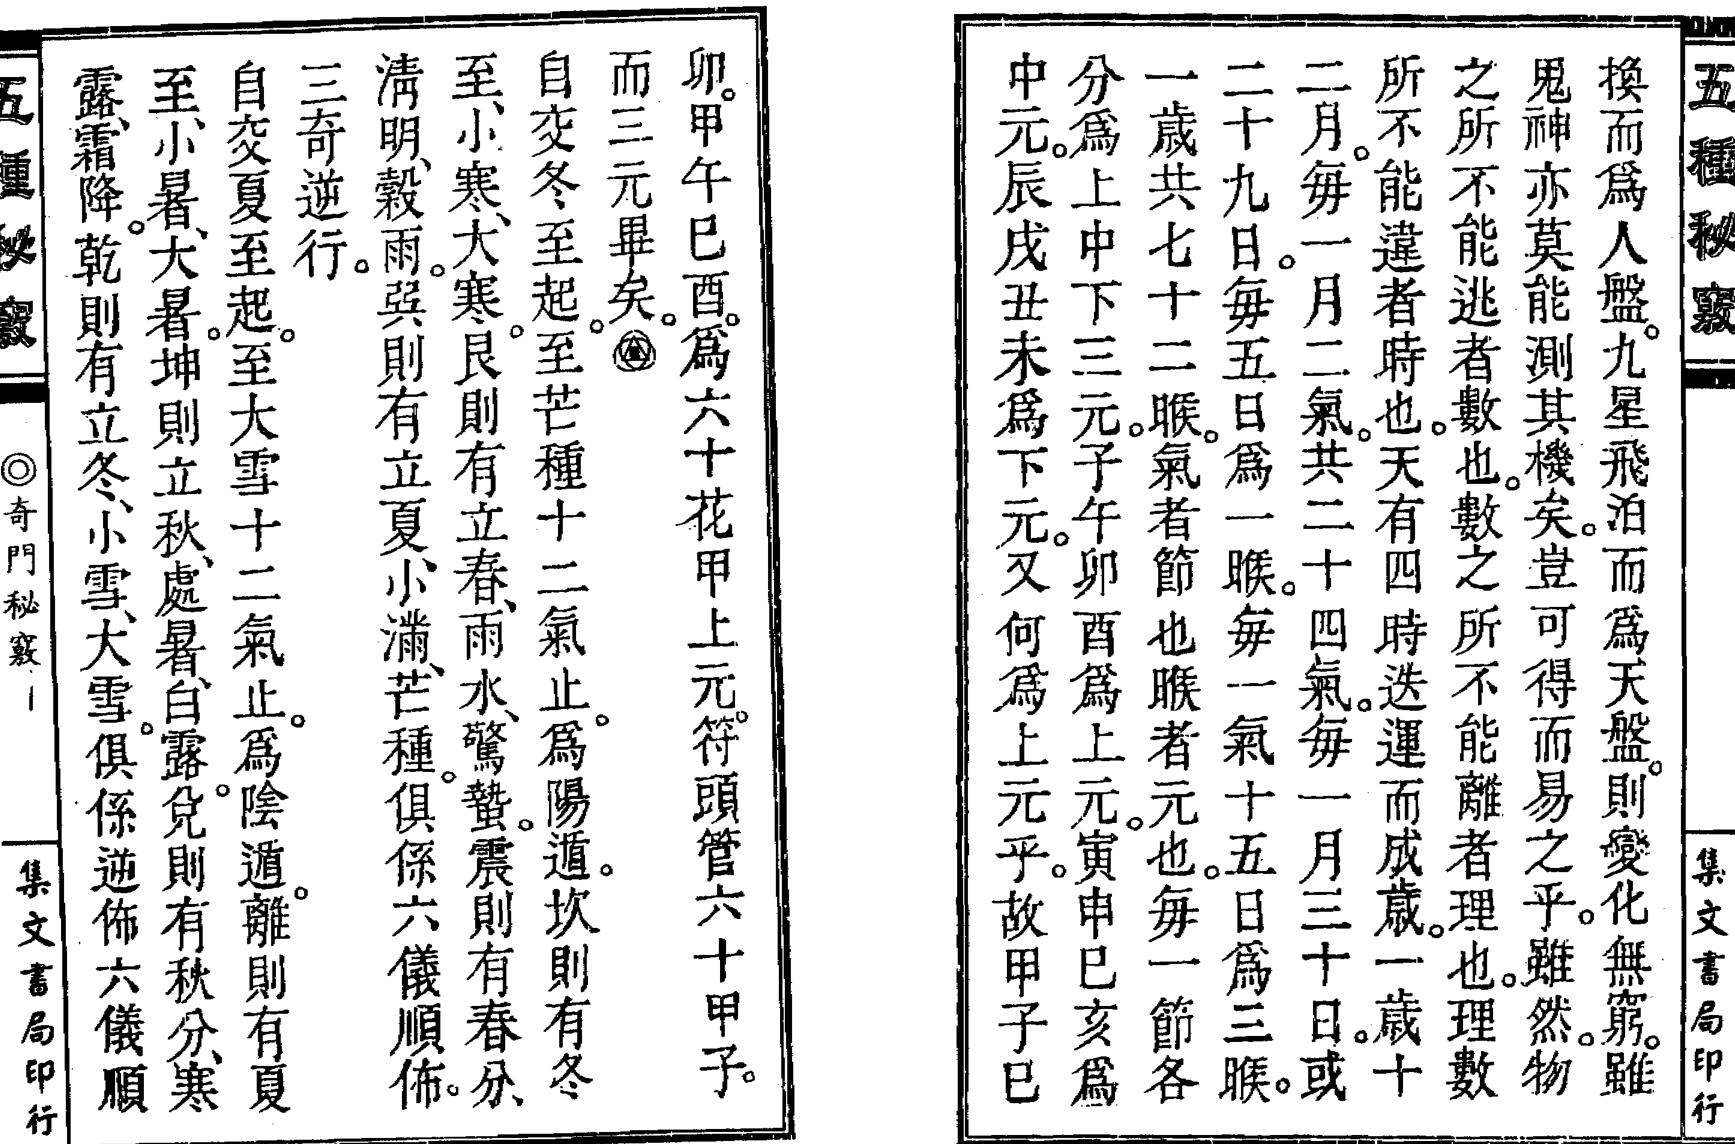 五種秘竅
集文書局印行
換而爲人盤。九星飛泊而爲天盤。則變化無窮。雖
鬼神亦莫能測其機矣。豈可得而易之乎。雖然。物
之所不能逃者數也。數之所不能離者理也。理數
所不能違者時也。天有四時迭運而成歲。一歲十
二月。每一月二氣。共二十四氣。每一月三十日。或
二十九日。每五日爲一㬋。每一氣十五日爲三㬋。
一歲共七十二㬋。氣者節也㬋者元也。每一節各
分爲上中下三元。子午卯酉爲上元。寅申巳亥爲
中元。辰戌丑未爲下元。又何爲上元乎。故甲子巳
卯。甲午巳酉。爲六十花甲上元。符頭管六十甲子。
而三元畢矣。
自交冬至起。至芒種十二氣止。爲陽遁。坎則有冬
至、小寒、大寒。艮則有立春、雨水、驚蟄。震則有春分、
淸明、榖雨。巽則有立夏、小滿、芒種。俱係六儀順佈。
三奇逆行。
自交夏至起。至大雪十二氣止。爲陰遁。離則有夏
至、小暑、大暑。坤則立秋、處暑、白露。兌則有秋分、寒
露、霜降。乾則有立冬、小雪、大雪。俱係逆佈六儀順
五種秘竅
◎奇門秘竅 一
集文書局印行